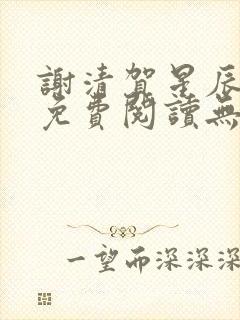 謝清賀星辰
免費閱讀無
一望而深深深